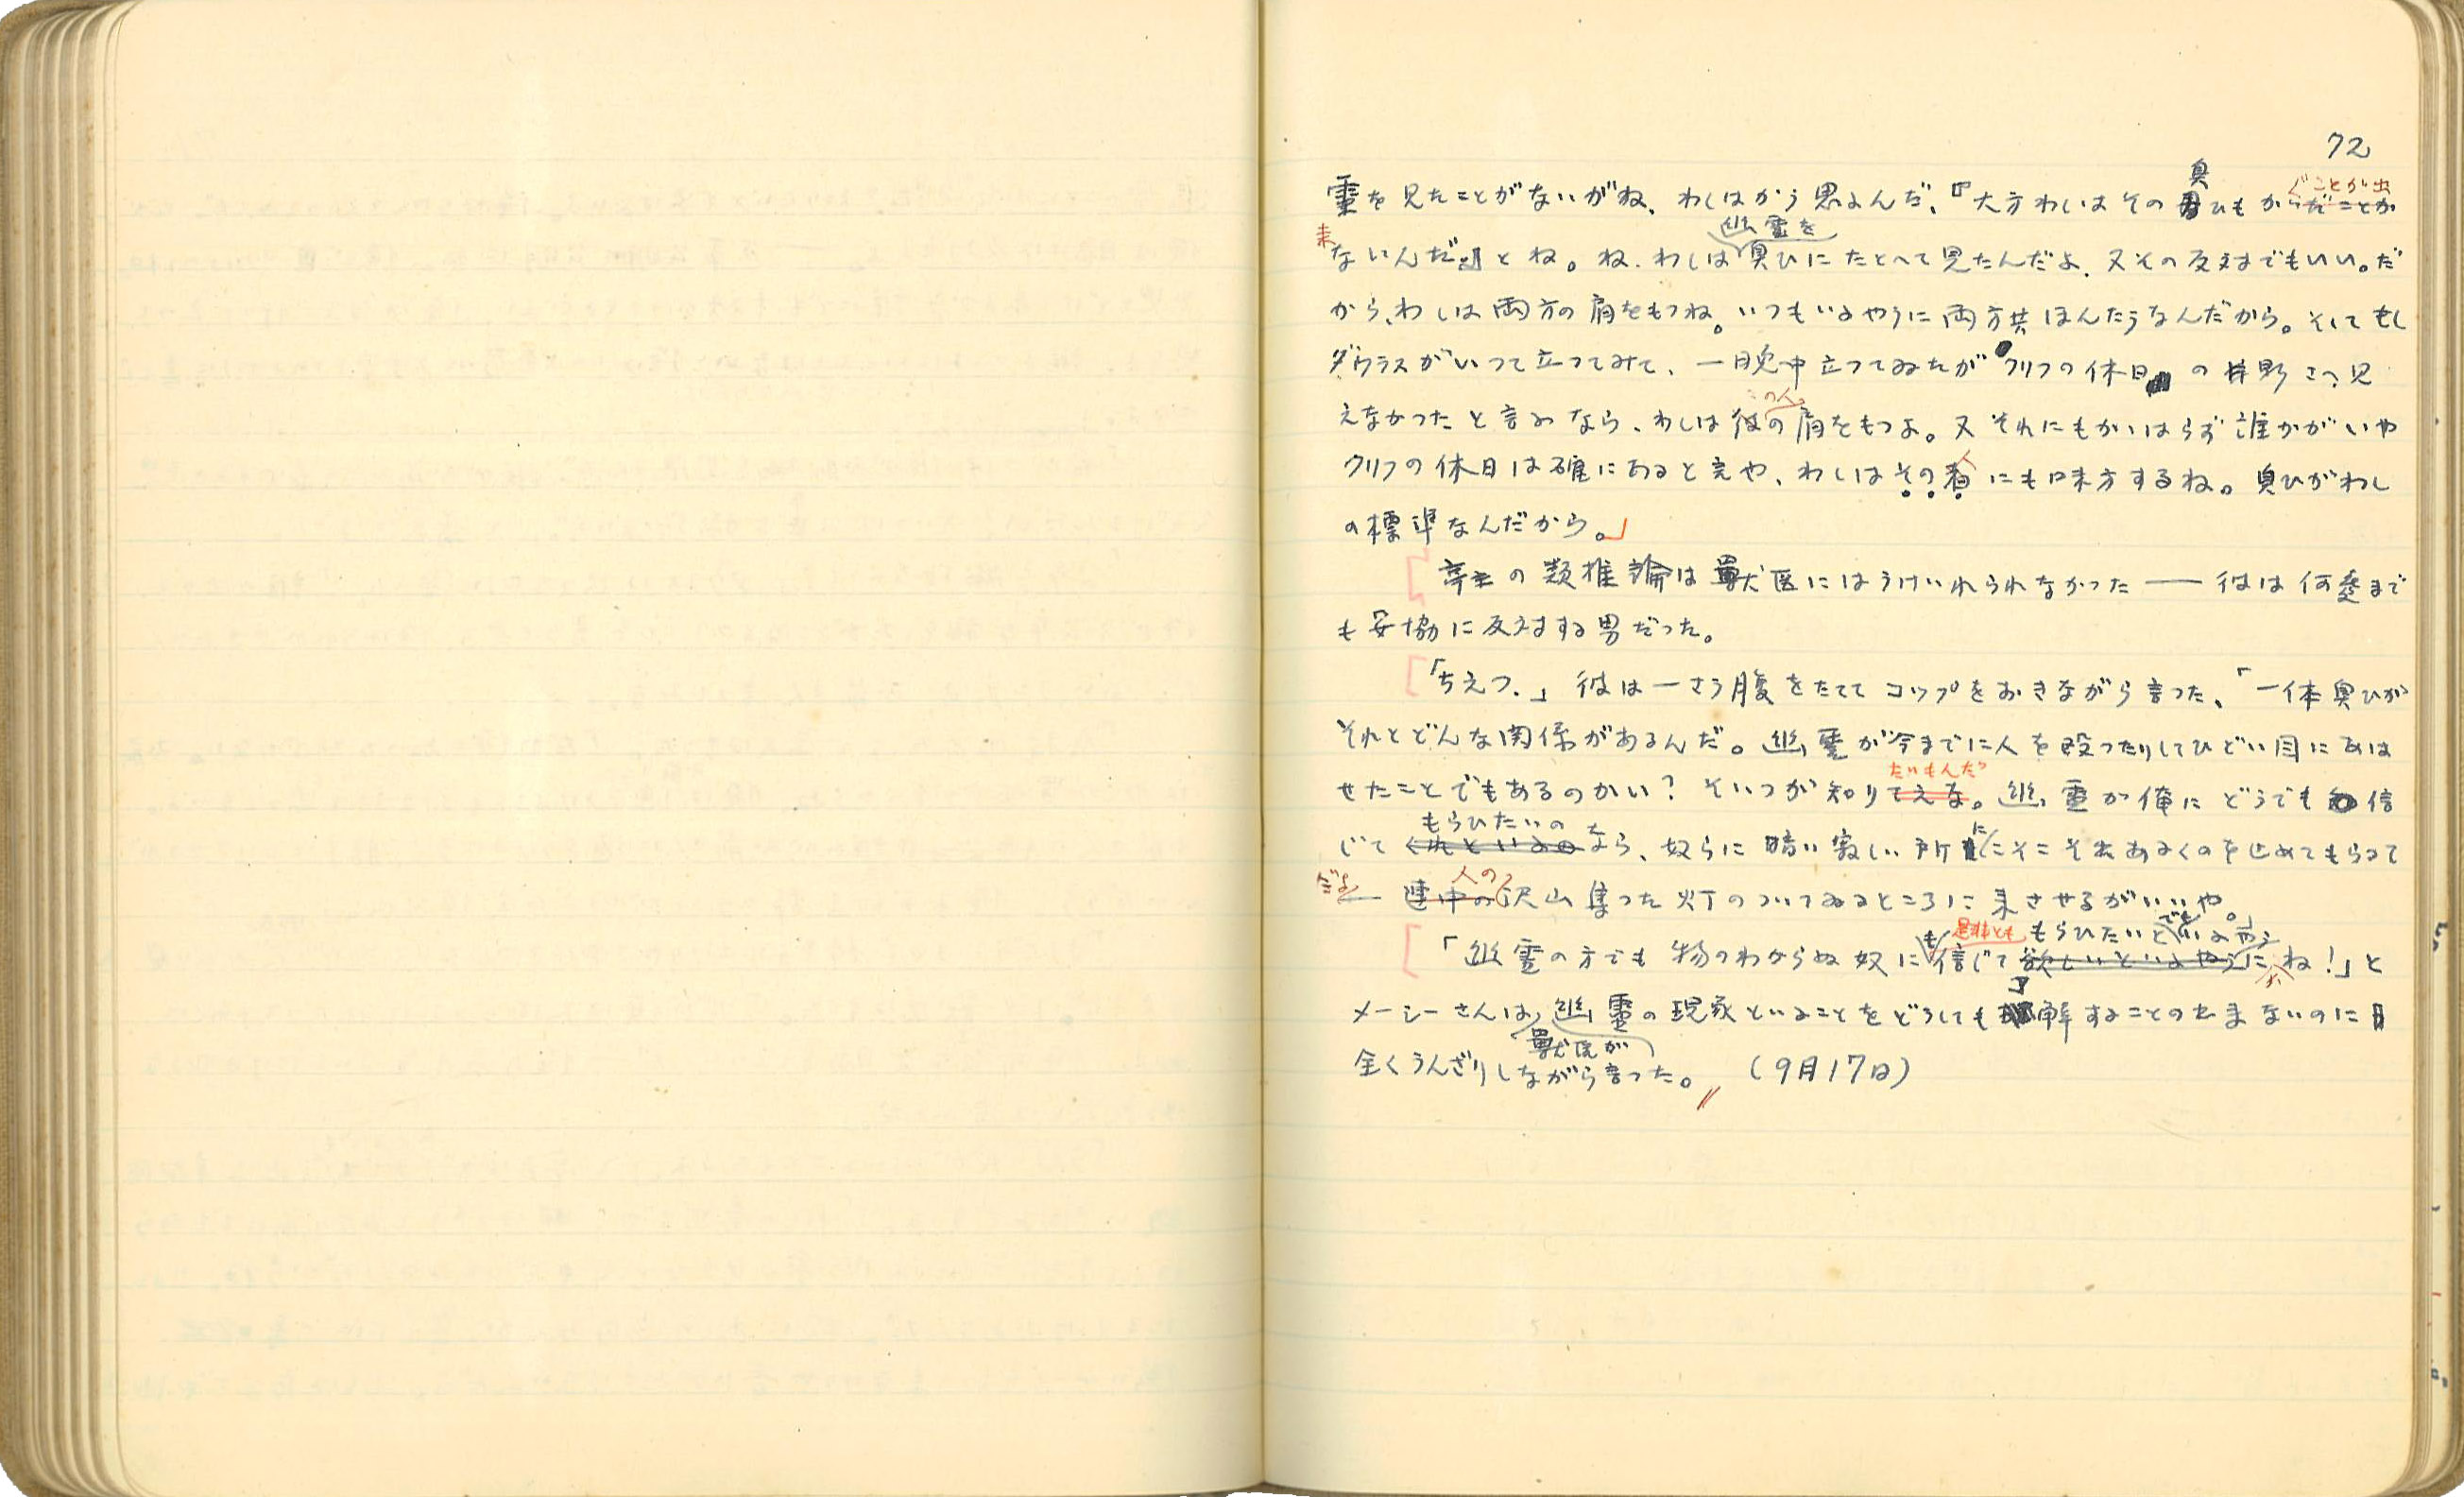 72
霊を見たことがないがね、わしはかう思ふんだ、『大方わしはその臭ひもかぐことが出
来ないんだ』とね。ね、わしは幽霊を臭ひにたとへて見たんだよ、又その反対でもいい。だ
から、わしは両方の肩をもつね。いつもいふやうに両方共ほんたうなんだから。そしてもし
ダウラスがいつて立つてみて、一晩中立つてゐたがクリフの休日の井野さへ見
えなかつたと言ふなら、わしはこの人の肩をもつよ。又それにもかゝはらず誰かがいや
クリフの休日は確にあると言や、わしはその人にも味方するね。臭ひがわし
の標準なんだから。」
亭主の類推論は獣医にはうけいれられなかつた——彼は何処まで
も妥協に反対する男だつた。
「ちえつ。」彼は一さう腹をたててコップをおきながら言つた、「一体臭ひが
それとどんな関係があるんだ。幽霊が今までに人を殴つたりしてひどい目にあは
せたことでもあるのかい？そいつが知りたいもんだ。幽霊が俺にどうでも信
じてもらひたいのなら、奴らに暗い寂しい所にこそこそあるくのを止めてもらつて
だよ— 人の沢山集つた灯のついてゐるところに来させるがいいや。」
「幽霊の方でも物のわからぬ奴にも信じて是非とももらひたいとでもいふやうにね！」と
メーシーさんは、幽霊の現象といふことをどうしても獣医が了解することの出来ないのに
全くうんざりしながら言つた。 (9月17日)